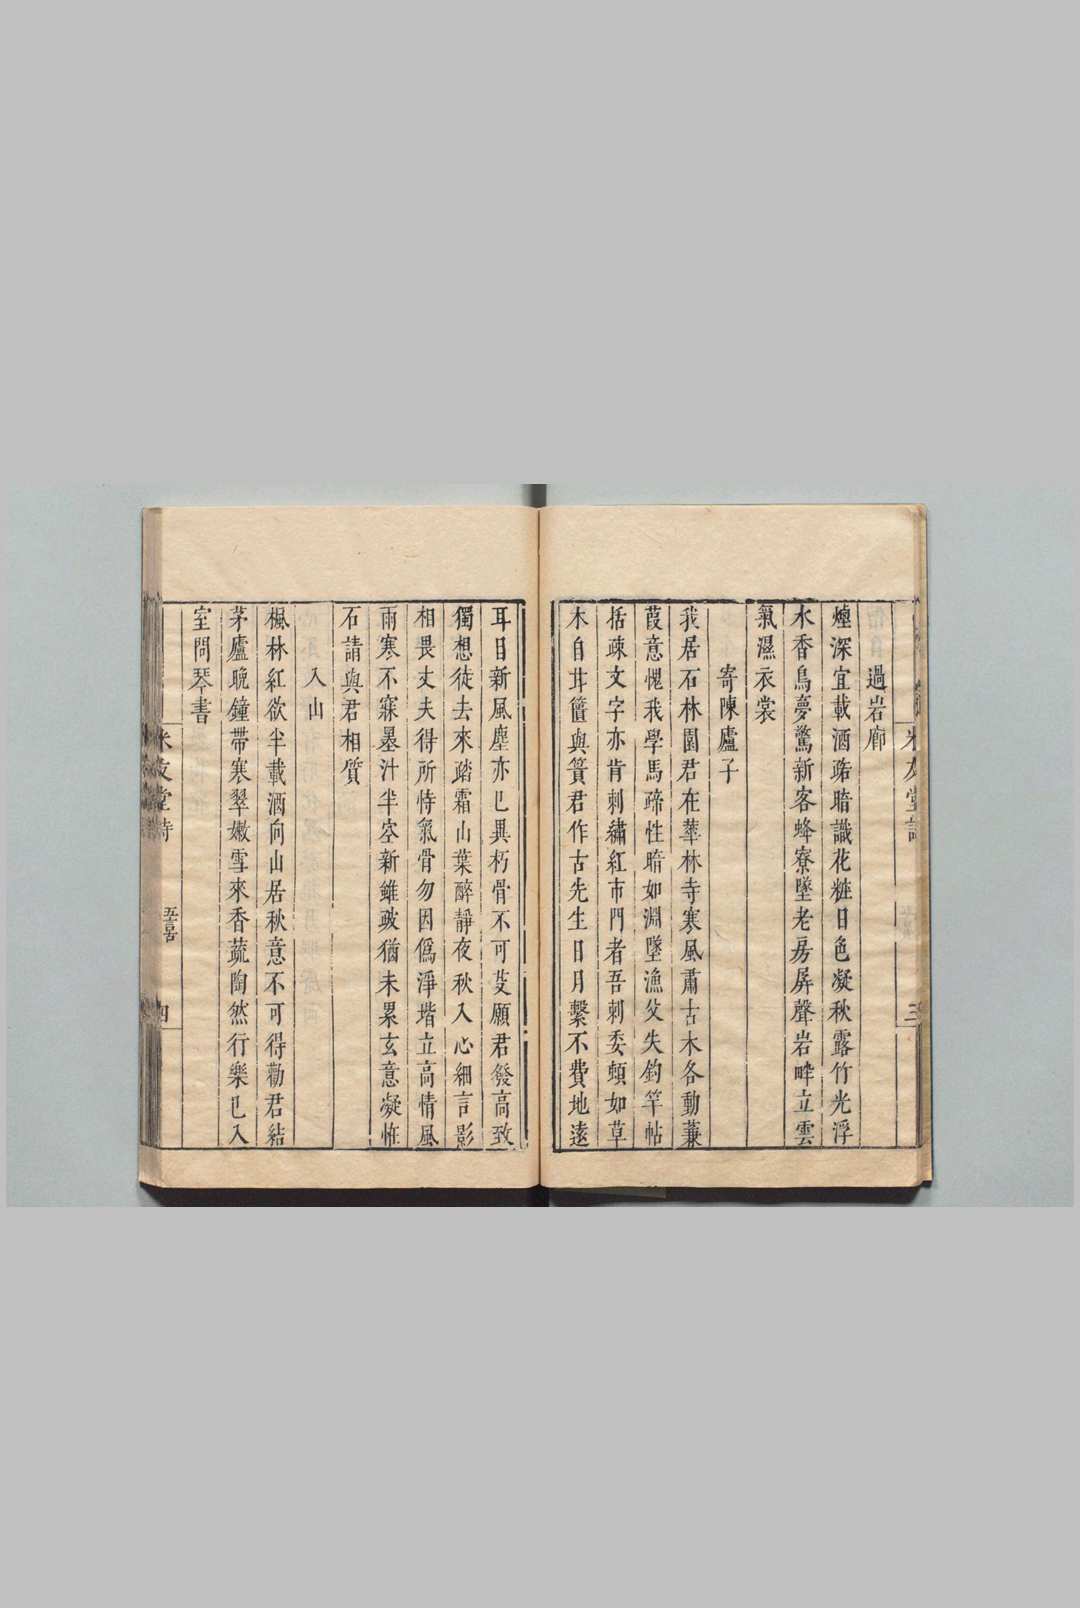 過岩廊
煙深宜載酒踣暗識花粧日色凝秋露竹光浮
水香鳥夢驚新客蜂寮墜老房屏聲岩畔立雲
氣濕衣裳
寄陳廬子
我居石林園君在華林寺寒風肅古木各動蒹
葭意愧我學馬蹄性暗如淵墜漁父失釣竿帖
括疎文字亦肯刺繡紅市門者吾刺委頓如草
木自甘簠與簣君作古先生日月繫不費地遠
耳目新風塵亦已異朽骨不可芟願君發高致
獨想徒去來踏霜山葉醉靜夜秋入心細言影
相畏丈夫得所恃氣骨勿因僞淨堦立高情風
雨寒不寐墨汁半空新雖跛猶未累玄意凝恠
石請與君相質
入山
楓林紅欲半載酒向山居秋意不可得勸君結
茅廬晚鐘帶寒翠嫩雪來香蔬陶然行樂已入
室問琴書
米友堂詩
三
米友堂詩
五言古
四